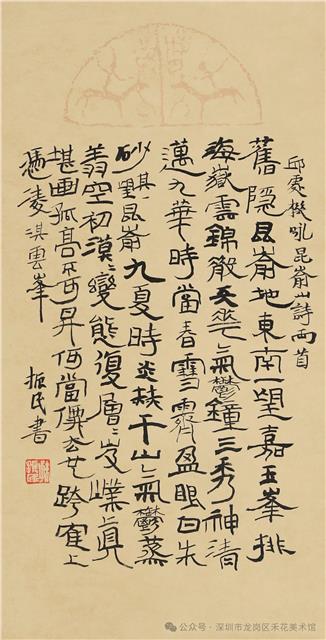 邱處機咏昆嵛山詩兩首
舊隱昆嵛地東南一望嘉五峯排
海嶽雲錦散天葩氣鬱鍾三秀神清
邁九華時當春雪霽盈眼白朱
砂其昆嵛九夏時炎赫千山氣鬱蒸
空初漠漠變態復層層岌嶪真
堪画孤高不可昇何當價去世跨隺上
憑凌淇雲峯 振民書
公众号 · 深圳市龙岗区禾花美术馆